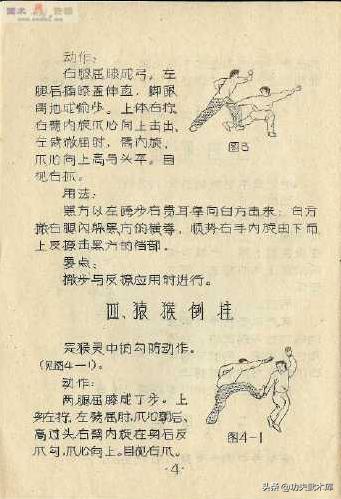 动作：
右腿屈膝成弓。左
腿后插膝盖伸直，脚跟
离地成偷步。上体右拧。
右臂内旋爪心向上击出，
左臂微屈时，臂内旋，
爪心向上高与头平。目
视右抓。
图3
用法：
黑方以左跨步右贯耳拳向白方击来；白方
撤右腿闪躲黑方的横拳，顺势右手内旋由下而
上反撩击黑方的裆部。
要点：
撤步与反撩应用时进行。
四、猿猴倒挂
是猴灵中的勾防动作。
（见图4—1）。
动作：
两腿屈膝成丁步。上
左拧，左臂屈时，爪心朝后、
高过头，右臂内旋在身右反
爪勾，爪心向上。目视右爪。
图4-1
·4·
头条@功夫武术库